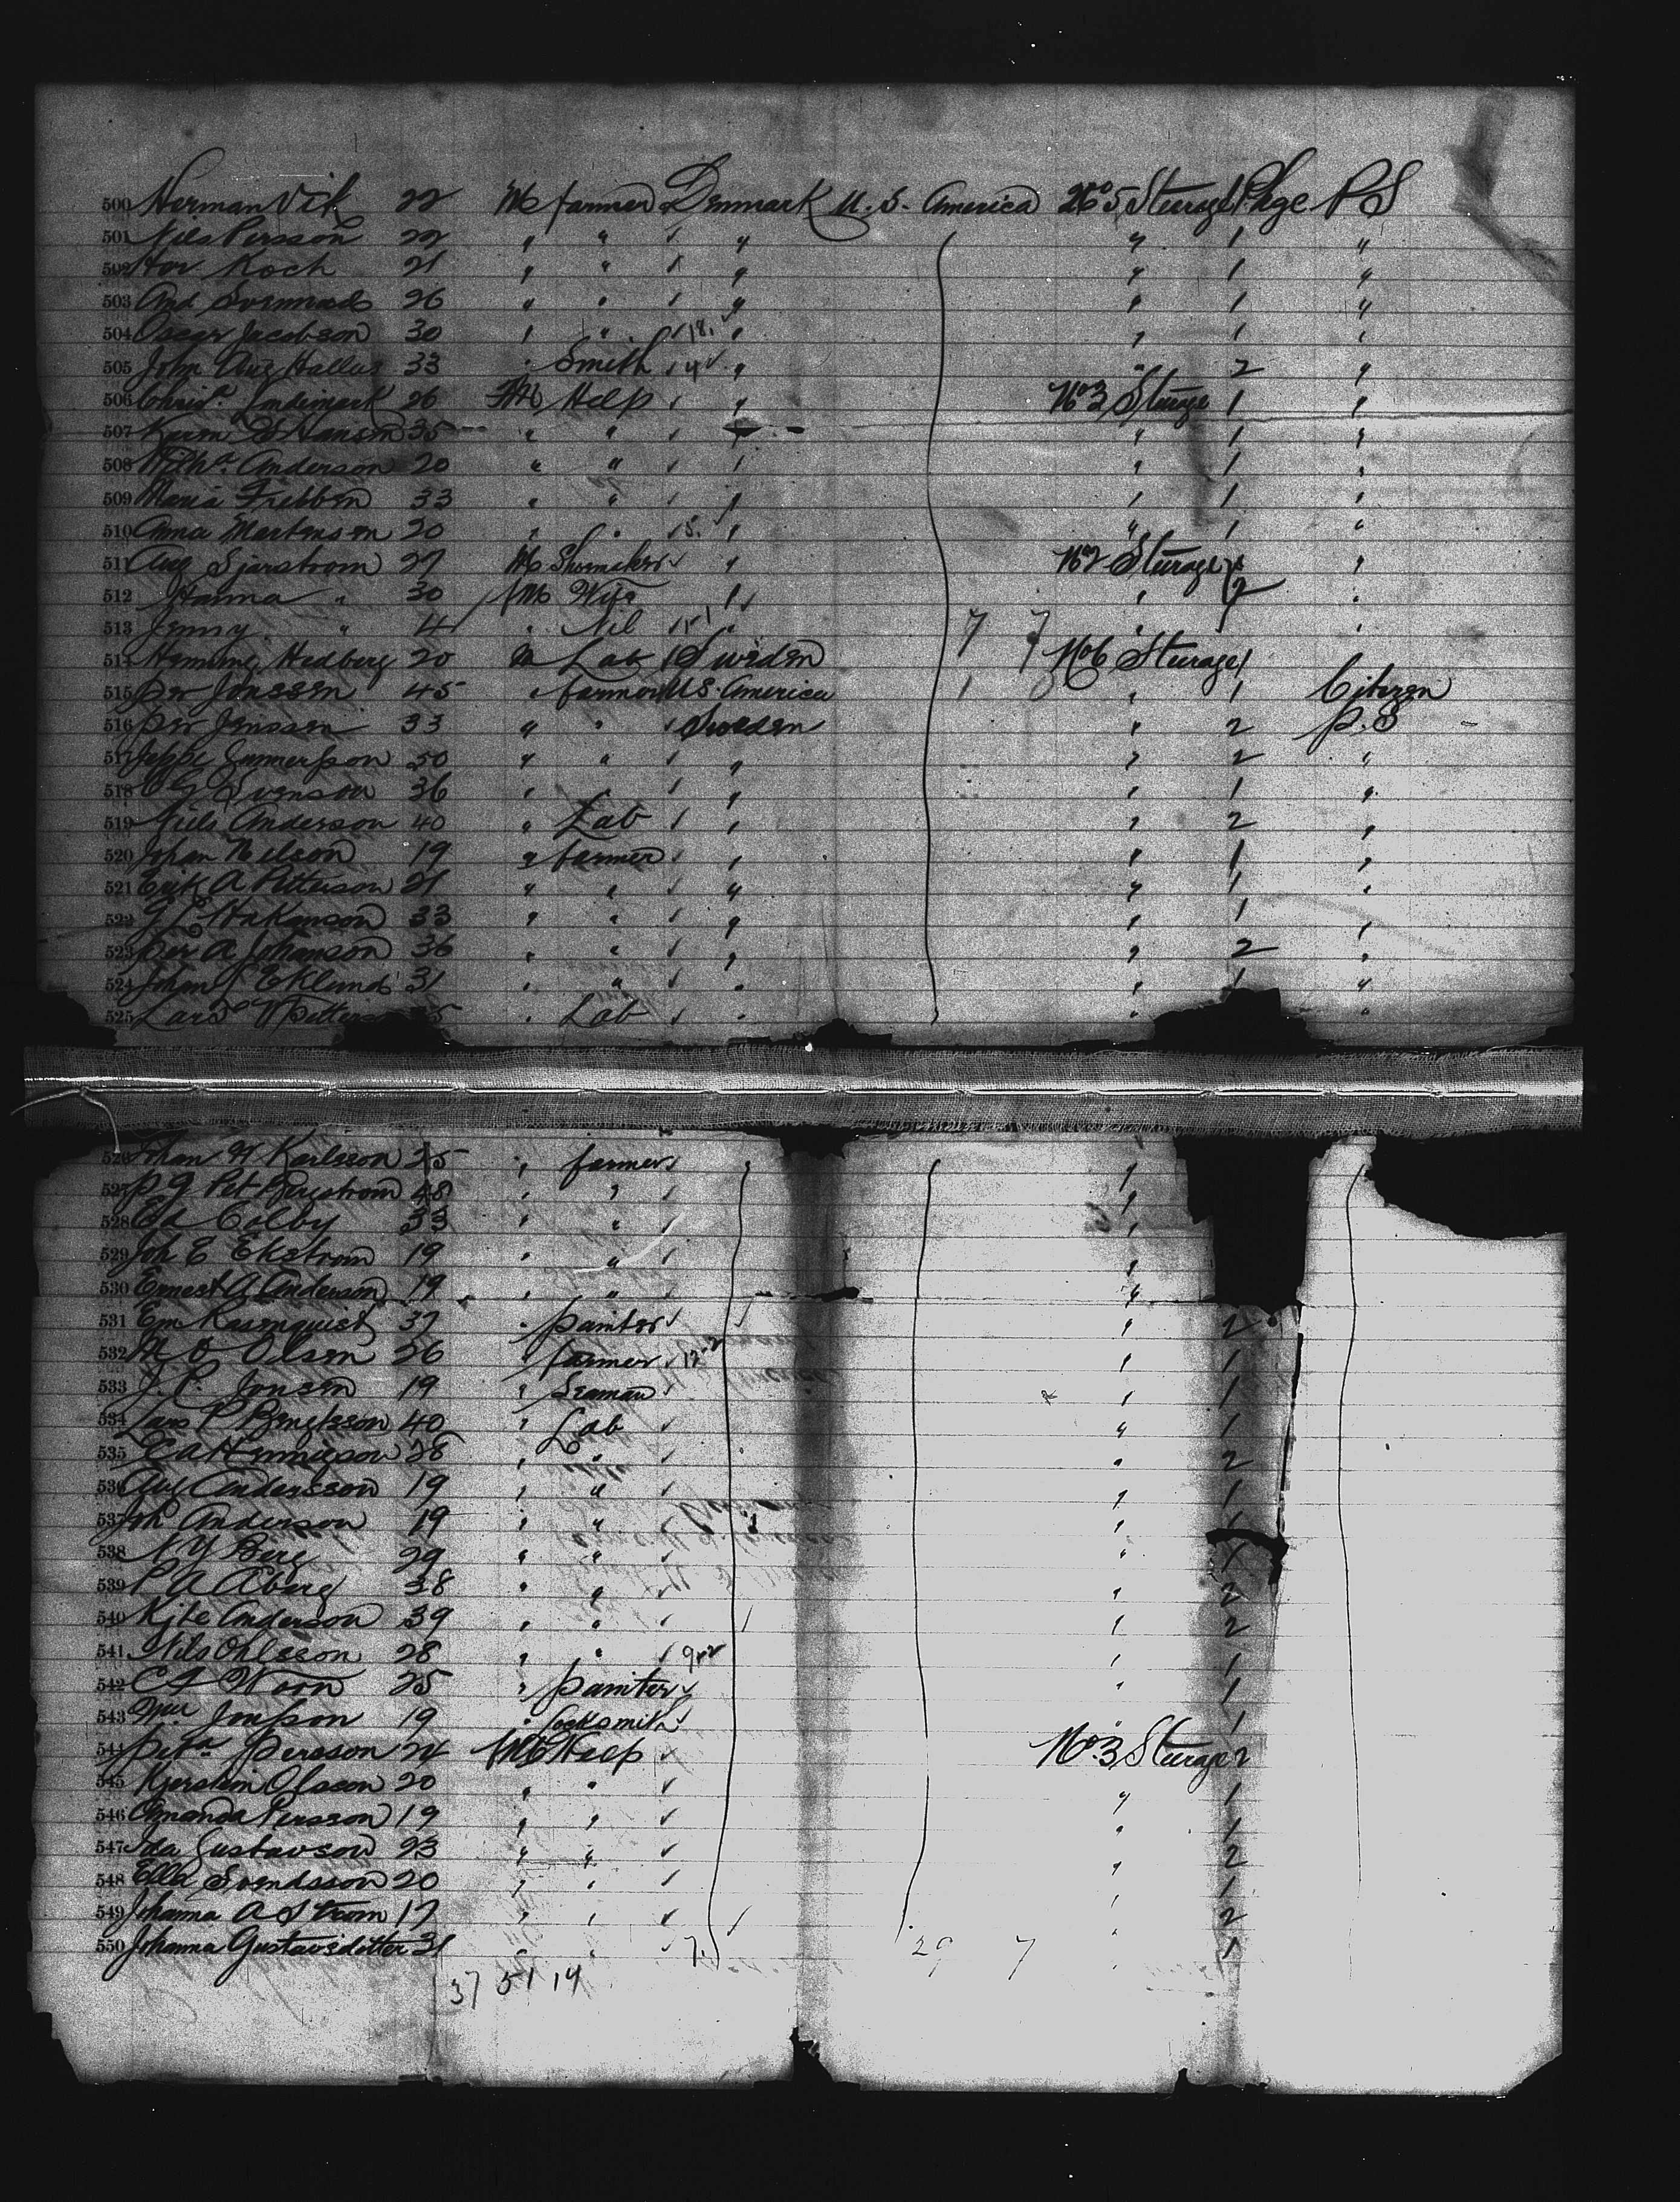 500 Herman Vik 22 M farmer Denmark U.S. America No 5 Sturage 1 Pkge P S
501 Nils Persson 22 " " " " " 1 "
502 Koch 21 " " " " " 1 "
503 And 26 " " " " " 1 "
504 Oscar Jacobson 30 " " 18 " " 1 "
505 John Aug Hallus 33 " Smith 4 " " 2 "
506 26 FM Help " No 3 Sturage 1 "
507 Hansen 35 " " " " 1 "
508 Anderson 20 " " " " 1 "
509 Maria 33 " " " " 1 "
510 Anna Martensen 20 " " 5 " " 1 "
511 Aug Sjarstrom 27 M Shomaker " No 2 Sturage "
512 Hanna " 30 FM Wife " " 2 "
513 Jenny " 4 " Nil " 7 7 " "
514 Hemming Hedberg 20 M Lab Sweden No 6 Sturage 1
515 Per Jonssen 45 " farmer U.S. America 1 " 1 Citizen
516 Per Jenssen 33 " " Sweden " 2 P.S
517 50 " " " " 2 "
518 Svenson 36 " " " " 1 "
519 Nils Anderson 40 " Lab " " 2 "
520 Johan Nelson 19 " farmer " " 1 "
521 Erik A Petterson 21 " " " " 1 "
522 Hakanson 33 " " " " 1 "
523 Per A Johanson 36 " " " " 2 "
524 Johan Eklund 31 " " " " 1 "
525 Lars " Lab " " "
526 Johan Karlsson 25 " farmer "
527 Bergstrom 48 " " "
528 Ed Colby 33 " " "
529 Joh E Ekstrom 19 " " "
530 Ernest A Anderson 19 " " "
531 Em Rasenquist 37 " painter " 2
532 M O Olsen 26 " farmer " 1
533 J. P. Jonsen 19 " Seaman " 1
534 Lars P Bengtsson 40 " Lab " 1
535 28 " " " 2
536 Aug Andersson 19 " " " 1
537 Joh Anderson 19 " " " 1
538 Berg 29 " " " 1
539 P A Aberg 38 " " " 2
540 Anderson 39 " " " 2
541 Nils Ohlsson 28 " " " 1
542 25 " painter " 1
543 19 " Locksmith " 1
544 Persson 24 FM Help No 3 Sturage 2
545 Kjerstin Olsson 20 " " " 1
546 Amanda Persson 19 " " " 1
547 Ida Gustavson 23 " " " 2
548 Ella Svendsson 20 " " " 1
549 Johanna A Strom 17 " " " 2
550 Johanna Gustavsdotter 31 " " 7 29 7 " 1
37 51 14